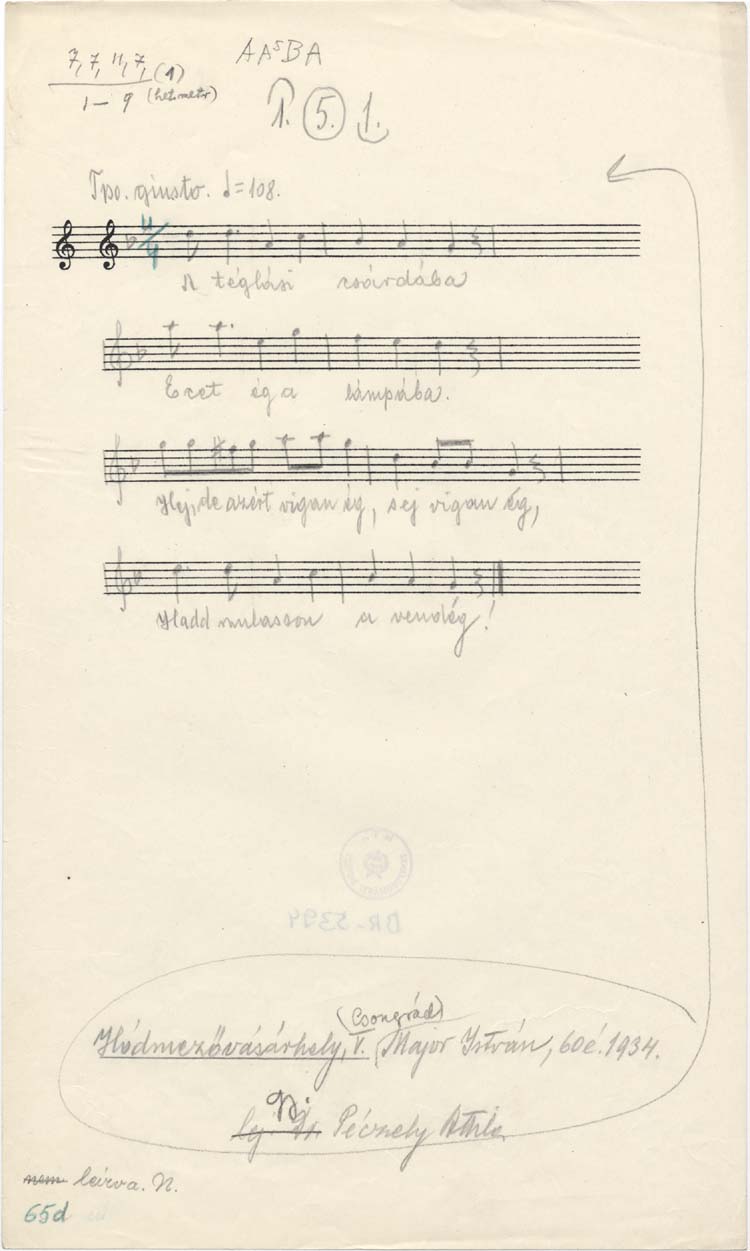 7, 7, 11, 7, (1)
1 – 9 (het.metr)
A A⁵ B A
1. 5. 1.
Tpo. giusto. ♩=108.
4/4
A téglási csárdába
Ecet ég a lámpába.
Hej, de azért vigan ég, sej vigan ég,
Hadd mulasson a vendég!
DR-5394
(Csongrád)
Hódmezővásárhely, V. Major István, 60 é. 1934.
lej. Dr. Péczely Attila
nem leírva. N.
65d